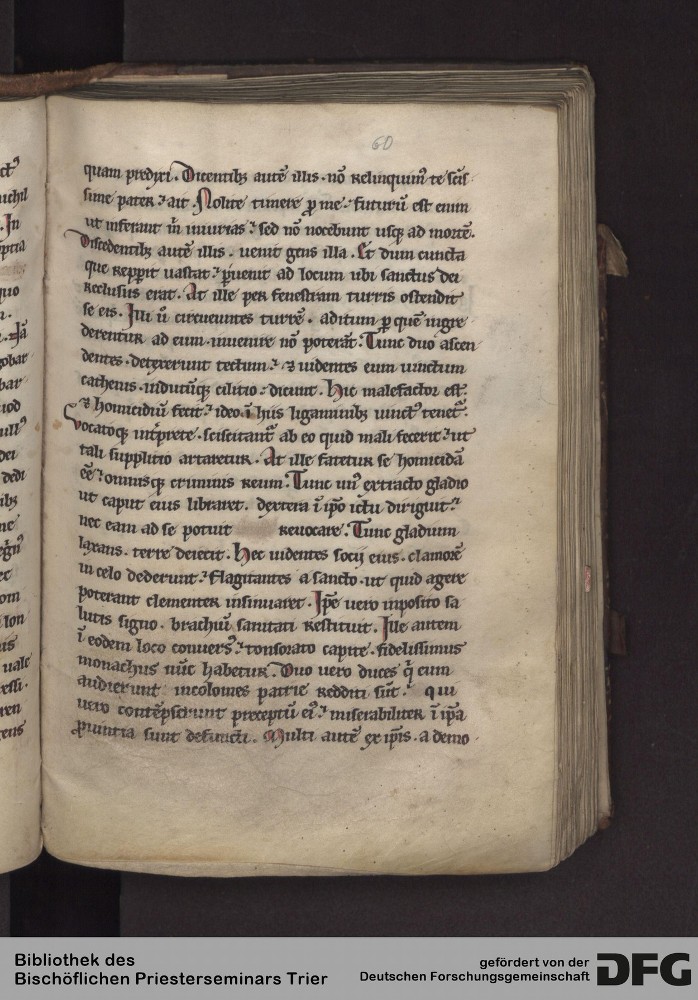 60
quam predixi. Dicentibꝫ autē illis. nō relinquimꝰ te scīs
sime pater. ⁊ ait. Nolite timere ꝓ me. futurū est enim
ut inferant m̄ iniurias. sed nō nocebunt usqꝫ ad mortē.
Discedentibꝫ autē illis. uenit gens illa. Et dum cuncta
que repperit uastat. ꝑuenit ad locum ubi sanctus dei
reclusus erat. At ille per fenestram turris ostendit
se eis. Illi ū circueuntes turrē. aditum ꝑ quē ingre
derentur ad eum. inuenire nō poterāt. Tunc duo ascen
dentes. detexerunt tectum. ⁊ uidentes eum uinctum
cathenis. indutūqꝫ cilitio. dicunt. Hic malefactor est.
⁊ homicidiū fecit. ideo ī his ligaminibꝫ uinctꝰ tenet̄.
Vocatoqꝫ inťprete. sciscitant̄ ab eo quid mali fecerit. ut
tali supplitio artaretur. At ille fatetur se homicidā
eē. omnisqꝫ criminis reum. Tunc unꝰ extracto gladio
ut caput eius libraret. dextera ī ipō ictu diriguit.
nec eam ad se potuit reuocare. Tunc gladium
laxans. terre deiecit. Hec uidentes socii eius. clamorē
in celo dederunt. flagitantes a sancto. ut quid agere
poterant clementer insinuaret. Ipē uero inposito sa
lutis signo. brachiū sanitati restituit. Ille autem
ī eodem loco conuersꝰ. tonsorato capite. fidelissimus
monachus nūc habetur. Duo uero duces q̄ eum
audierunt incolomes patrie redditi sūt. qui
uero contēpserunt preceptū eiꝰ. miserabiliter ī ipā
ꝓuintia sunt defuncti. Multi autē ex ip̄is. a demo
ctꝰ
nichil
In
quo
gobar
bar
dei
dedi
ibꝫ
om
lon
uale
ren
gens
Bibliothek des
Bischöflichen Priesterseminars Trier
gefördert von der
Deutschen Forschungsgemeinschaft
DFG